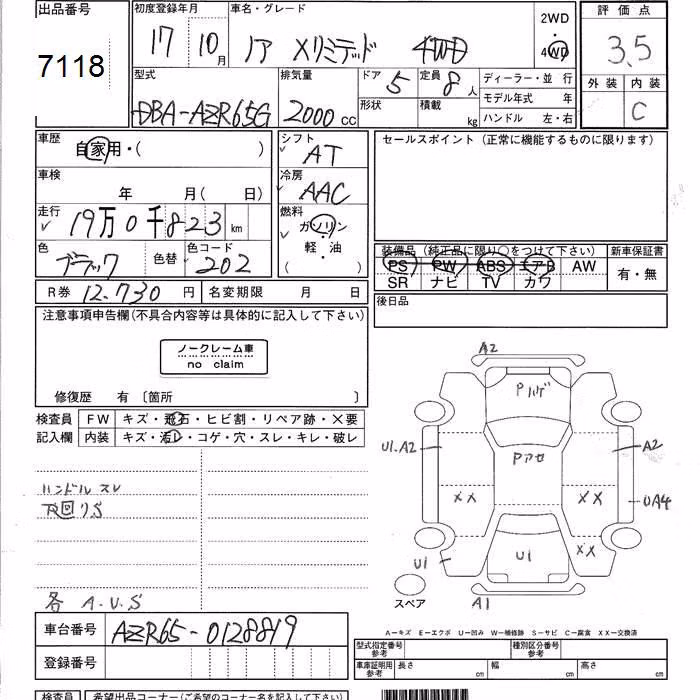 出品番号
7118
初度登録年月
17 10月
車名・グレード
ノア Xリミテッド 4WD
2WD
・
4WD
評価点
3.5
外装 内装
C
型式
DBA-AZR65G
排気量
2000 cc
ドア 5
形状
定員 8 人
積載 kg
ディーラー・並 行
モデル年式 年
ハンドル 左・右
車歴
自家用・( )
車検
年 月( 日)
走行
19万0千823 km
色
ブラック
色替
色コード
202
シフト
AT
冷房
AAC
燃料
ガソリン
軽・油
( )
セールスポイント (正常に機能するものに限ります)
装備品 (純正品に限り○をつけて下さい)
PS PW ABS エアB AW
SR ナビ TV カワ
新車保証書
有・無
後日品
R券 12,730 円
名変期限 月 日
注意事項申告欄(不具合内容等は具体的に記入して下さい)
ノークレーム車
no claim
修復歴 有 〔箇所 〕
検査員
記入欄
FW キズ・飛石・ヒビ割・リペア跡・X要
内装 キズ・汚レ・コゲ・穴・スレ・キレ・破レ
ハンドル スレ
下回りS
各 A.U.S
A2
Pハゲ
U1.A2
Pアセ
A2
XX
XX
UA4
U1
U1
XX
A1
スペア
車台番号 AZR65-0128819
登録番号
A−キズ E−エクボ U−凹み W−補修跡 S−サビ C−腐食 XX−交換済
型式指定番号
参考
種別区分番号
参考
車庫証明用
参考
長さ cm 幅 cm 高さ cm
検査員 希望出品コーナー(ご希望のコーナー名を記入して下さい)